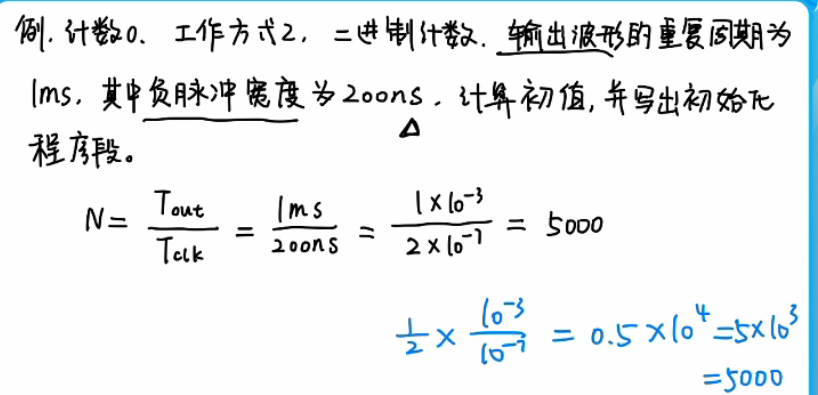 例. 计数0. 工作方式2, 二进制计数. 输出波形的重复周期为
1ms, 其中负脉冲宽度为200ns. 计算初值, 并写出初始化
程序段。
N = Tout / Tclk = 1ms / 200ns = 1×10⁻³ / 2×10⁻⁷ = 5000
1/2 × 10⁻³ / 10⁻⁷ = 0.5×10⁴ = 5×10³
= 5000